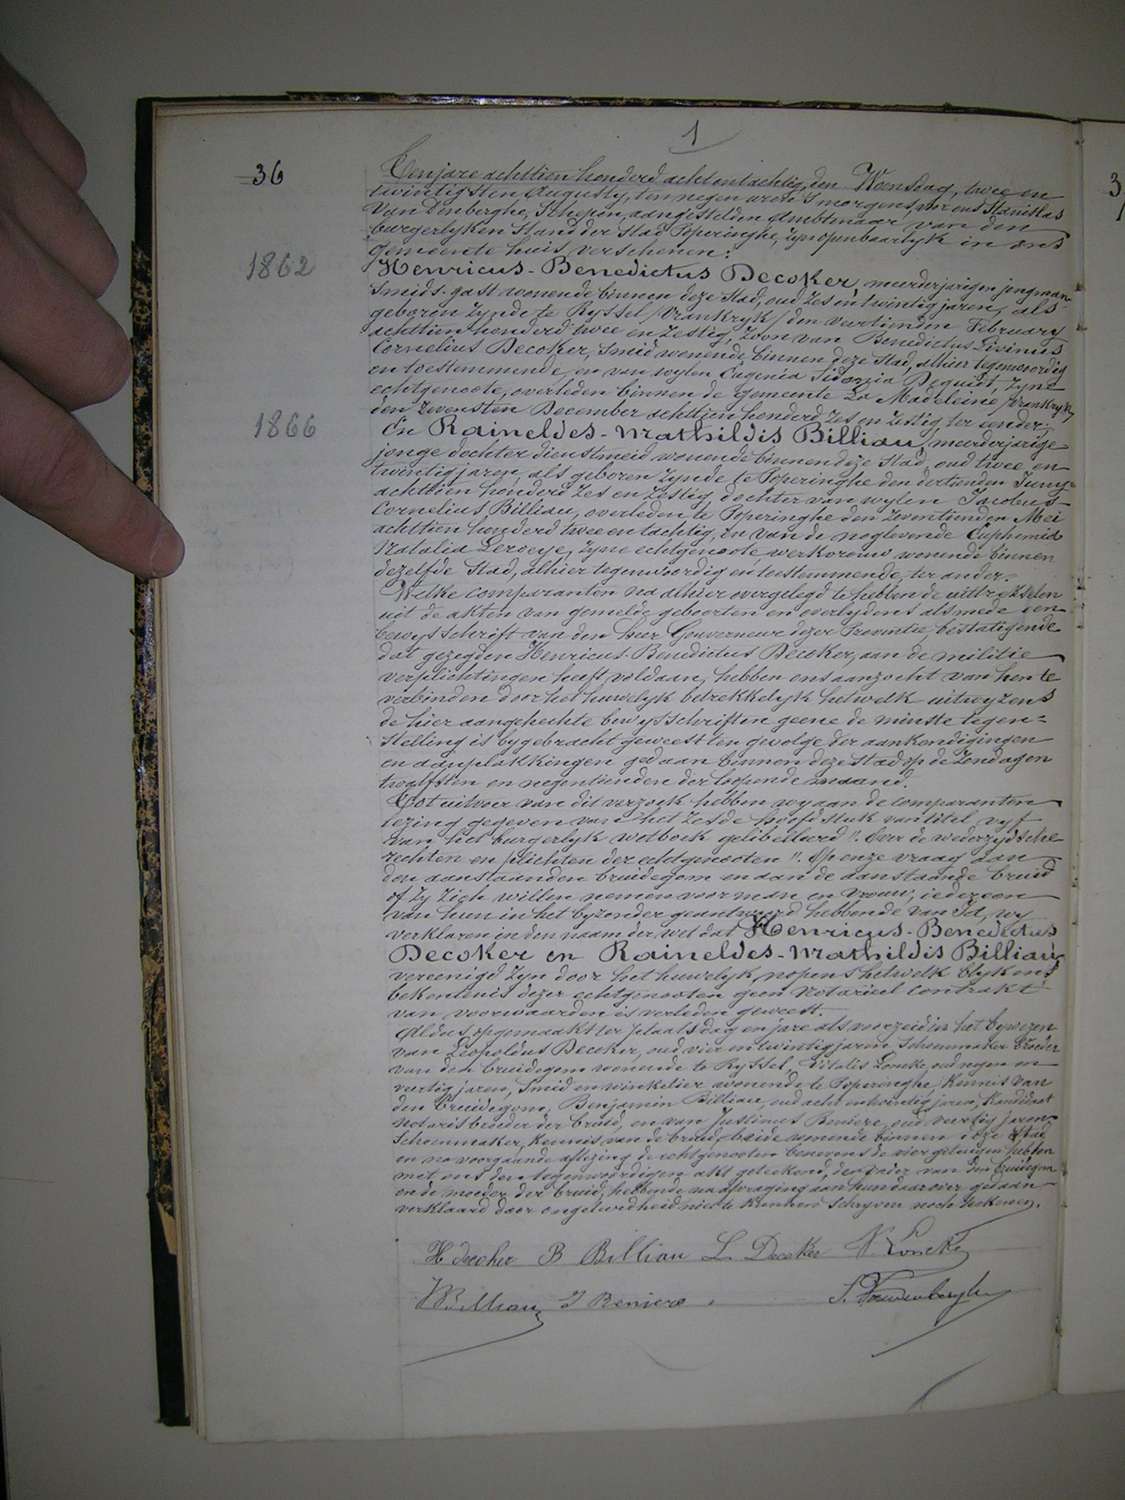 1
36
Ten jare achttien honderd acht en tachtig, den Woensdag, twee en
twintigsten Augusty, ten negen uren 's morgens, voor ons Stanislas
Van Denberghe, Schepen, aangestelden Ambtenaar van den
burgerlyken Stand der Stad Poperinghe, zyn openbaarlyk in ons
gemeente huis verschenen:
1862
Henricus-Benedictus Decoker, meerderjarigen jongman
Smids-gast wonende binnen deze Stad, oud zes en twintig jaren, als
geboren zynde te Ryssel /Vrankryk/ den veertienden February
achttien honderd twee en zestig, zoon van Benedictus Livinus
Cornelius Decoker, Smid wonende binnen deze Stad, alhier tegenwoordig
en toestemmende, en van wylen Eugenia Sidonia Dequidt, zyne
echtgenoote, overleden binnen de gemeente La Madeleine /Vrankryk/
den zevensten December achttien honderd zes en zestig ter eender;
1866
En Raineldes-Mathildis Billiau, meerderjarige
jonge dochter dienstmeid wonende binnen deze Stad, oud twee en
twintig jaren, als geboren zynde te Poperinghe den dertienden Juny
achttien honderd zes en zestig, dochter van wylen Jacobus
Cornelius Billiau, overleden te Poperinghe den zeventienden Mei
achttien honderd twee en tachtig, en van de noglevende Euphemia
Natalia Leroeye, zyne echtgenoote, werkvrouw wonende binnen
dezelfde Stad, alhier tegenwoordig en toestemmende, ter ander.
Welke comparanten na alhier overgelegd te hebben de uittreksels
uit de akten van gemelde geboorten en overlydens alsmede een
bewysschrift van den heer Gouverneur dezer Provintie, bestatigende
dat gezegden Henricus-Benedictus Decoker, aan de militie
verplichtingen heeft voldaan, hebben ons aanzocht van hen te
verbinden door het huwelyk betrekkelyk hetwelk uitwyzens
de hier aangehechte bewysschriften geene de minste tegen=
stelling is bygebracht geweest ten gevolge der aankondigingen
en aanplakkingen gedaan binnen deze Stad op de Zondagen
twaalfsten en negentienden der loopende maand.
Tot uitvoer van dit verzoek hebben wy aan de comparanten
lezing gegeven van het zesde hoofdstuk van titel vyf
van het burgerlyk wetboek gelibelleerd ". Over de wederzydsche
rechten en plichten der echtgenooten ". Op onze vraag aan
den aanstaanden bruidegom en aan de aanstaande bruid
of zy zich willen nemen voor man en vrouw; iedereen
van hun in het byzonder geantwoord hebbende van Ja, wy
verklaren in den naam der wet dat Henricus-Benedictus
Decoker en Raineldes-Mathildis Billiau
vereenigd zyn door het huwelyk, nopens hetwelk blykens
bekentenis dezer echtgenooten geen notarieel contrakt
van voorwaarden is verleden geweest.
Aldus opgemaakt ter plaats dag en jare als voorzeid in het bywezen
van Leopoldus Decoker, oud vier en twintig jaren, Schoenmaker broeder
van den bruidegom wonende te Ryssel, Vitalis Loncke oud negen en
veertig jaren, Smid en winkelier wonende te Poperinghe, Kennis van
den bruidegom, Benjamin Billiau, oud acht en twintig jaren, Kandidaat
notaris broeder der bruid, en van Justinus Reniere, oud veertig jaren
Schoenmaker, Kennis van de bruid, beide wonende binnen deze Stad
en na voorgaande aflezing de echtgenooten benevens de vier getuigen hebben
met ons den tegenwoordigen akt geteekend, de vader van den bruidegom
en de moeder der bruid hebbende na afvraging aan hun daarover gedaan
verklaard door ongeleerdheid niet te kunnen Schryven noch teekenen.
H decoker B Billiau L Decoker V. Loncke
Billiau J Reniere S. Vandenberghe